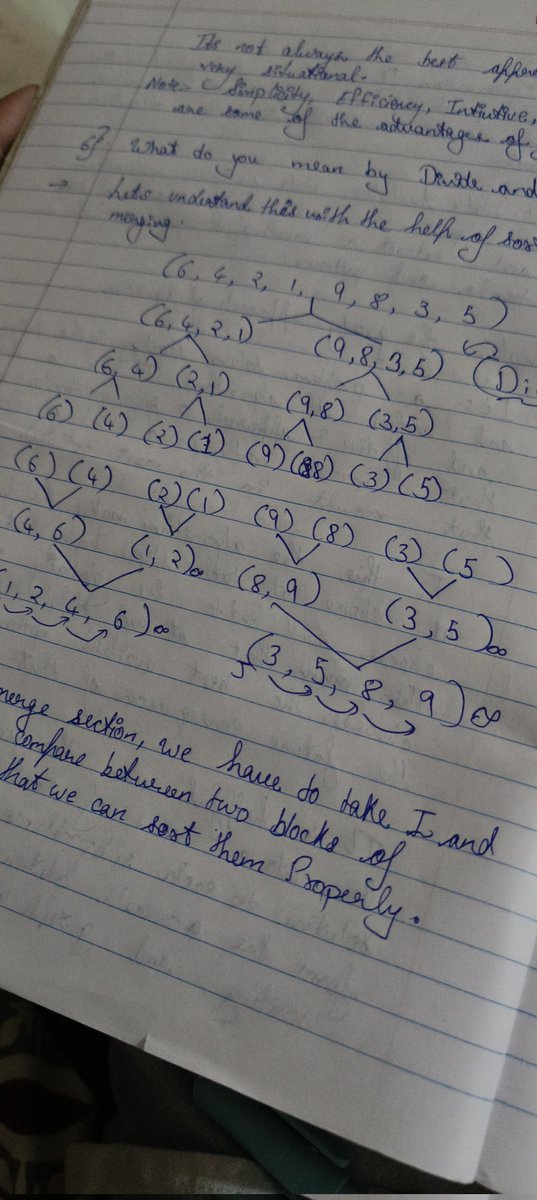 Its not always the best
very situational.
Note:- Simplisity, Efficiency, Intiutive,
are some of the advantages of
6} What do you mean by Divide and
→ Lets understand this with the help of
merging.
(6, 4, 2, 1, 9, 8, 3, 5)
(6,4,2,1) (9,8,3,5)
(6,4) (2,1) (9,8) (3,5)
(6) (4) (2) (1) (9) (8) (3) (5)
(6) (4) (2) (1) (9) (8) (3) (5)
(4,6) (1,2)∞ (8,9) (3,5)∞
1, 2, 4, 6)∞ (3, 5, 8, 9)∞
merge section, we have to take I and
compare between two blocks of
that we can sort them Properly.